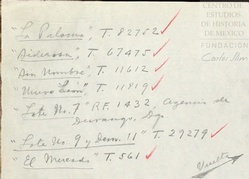 CENTRO DE
ESTUDIOS
DE HISTORIA
DE MEXICO
FUNDACIÓN
Carlos Slim
"La Paloma", T. 82762
T. 67475
"Sin Nombre", T. 11612
"Nuevo León", T. 11819
"Lote No. 7" R.F. 1432, Agencia de
Durango, Dgo.
"Lote No. 9 y Dem. 11" T. 29279
"El Mercado" T. 561
Vuelta